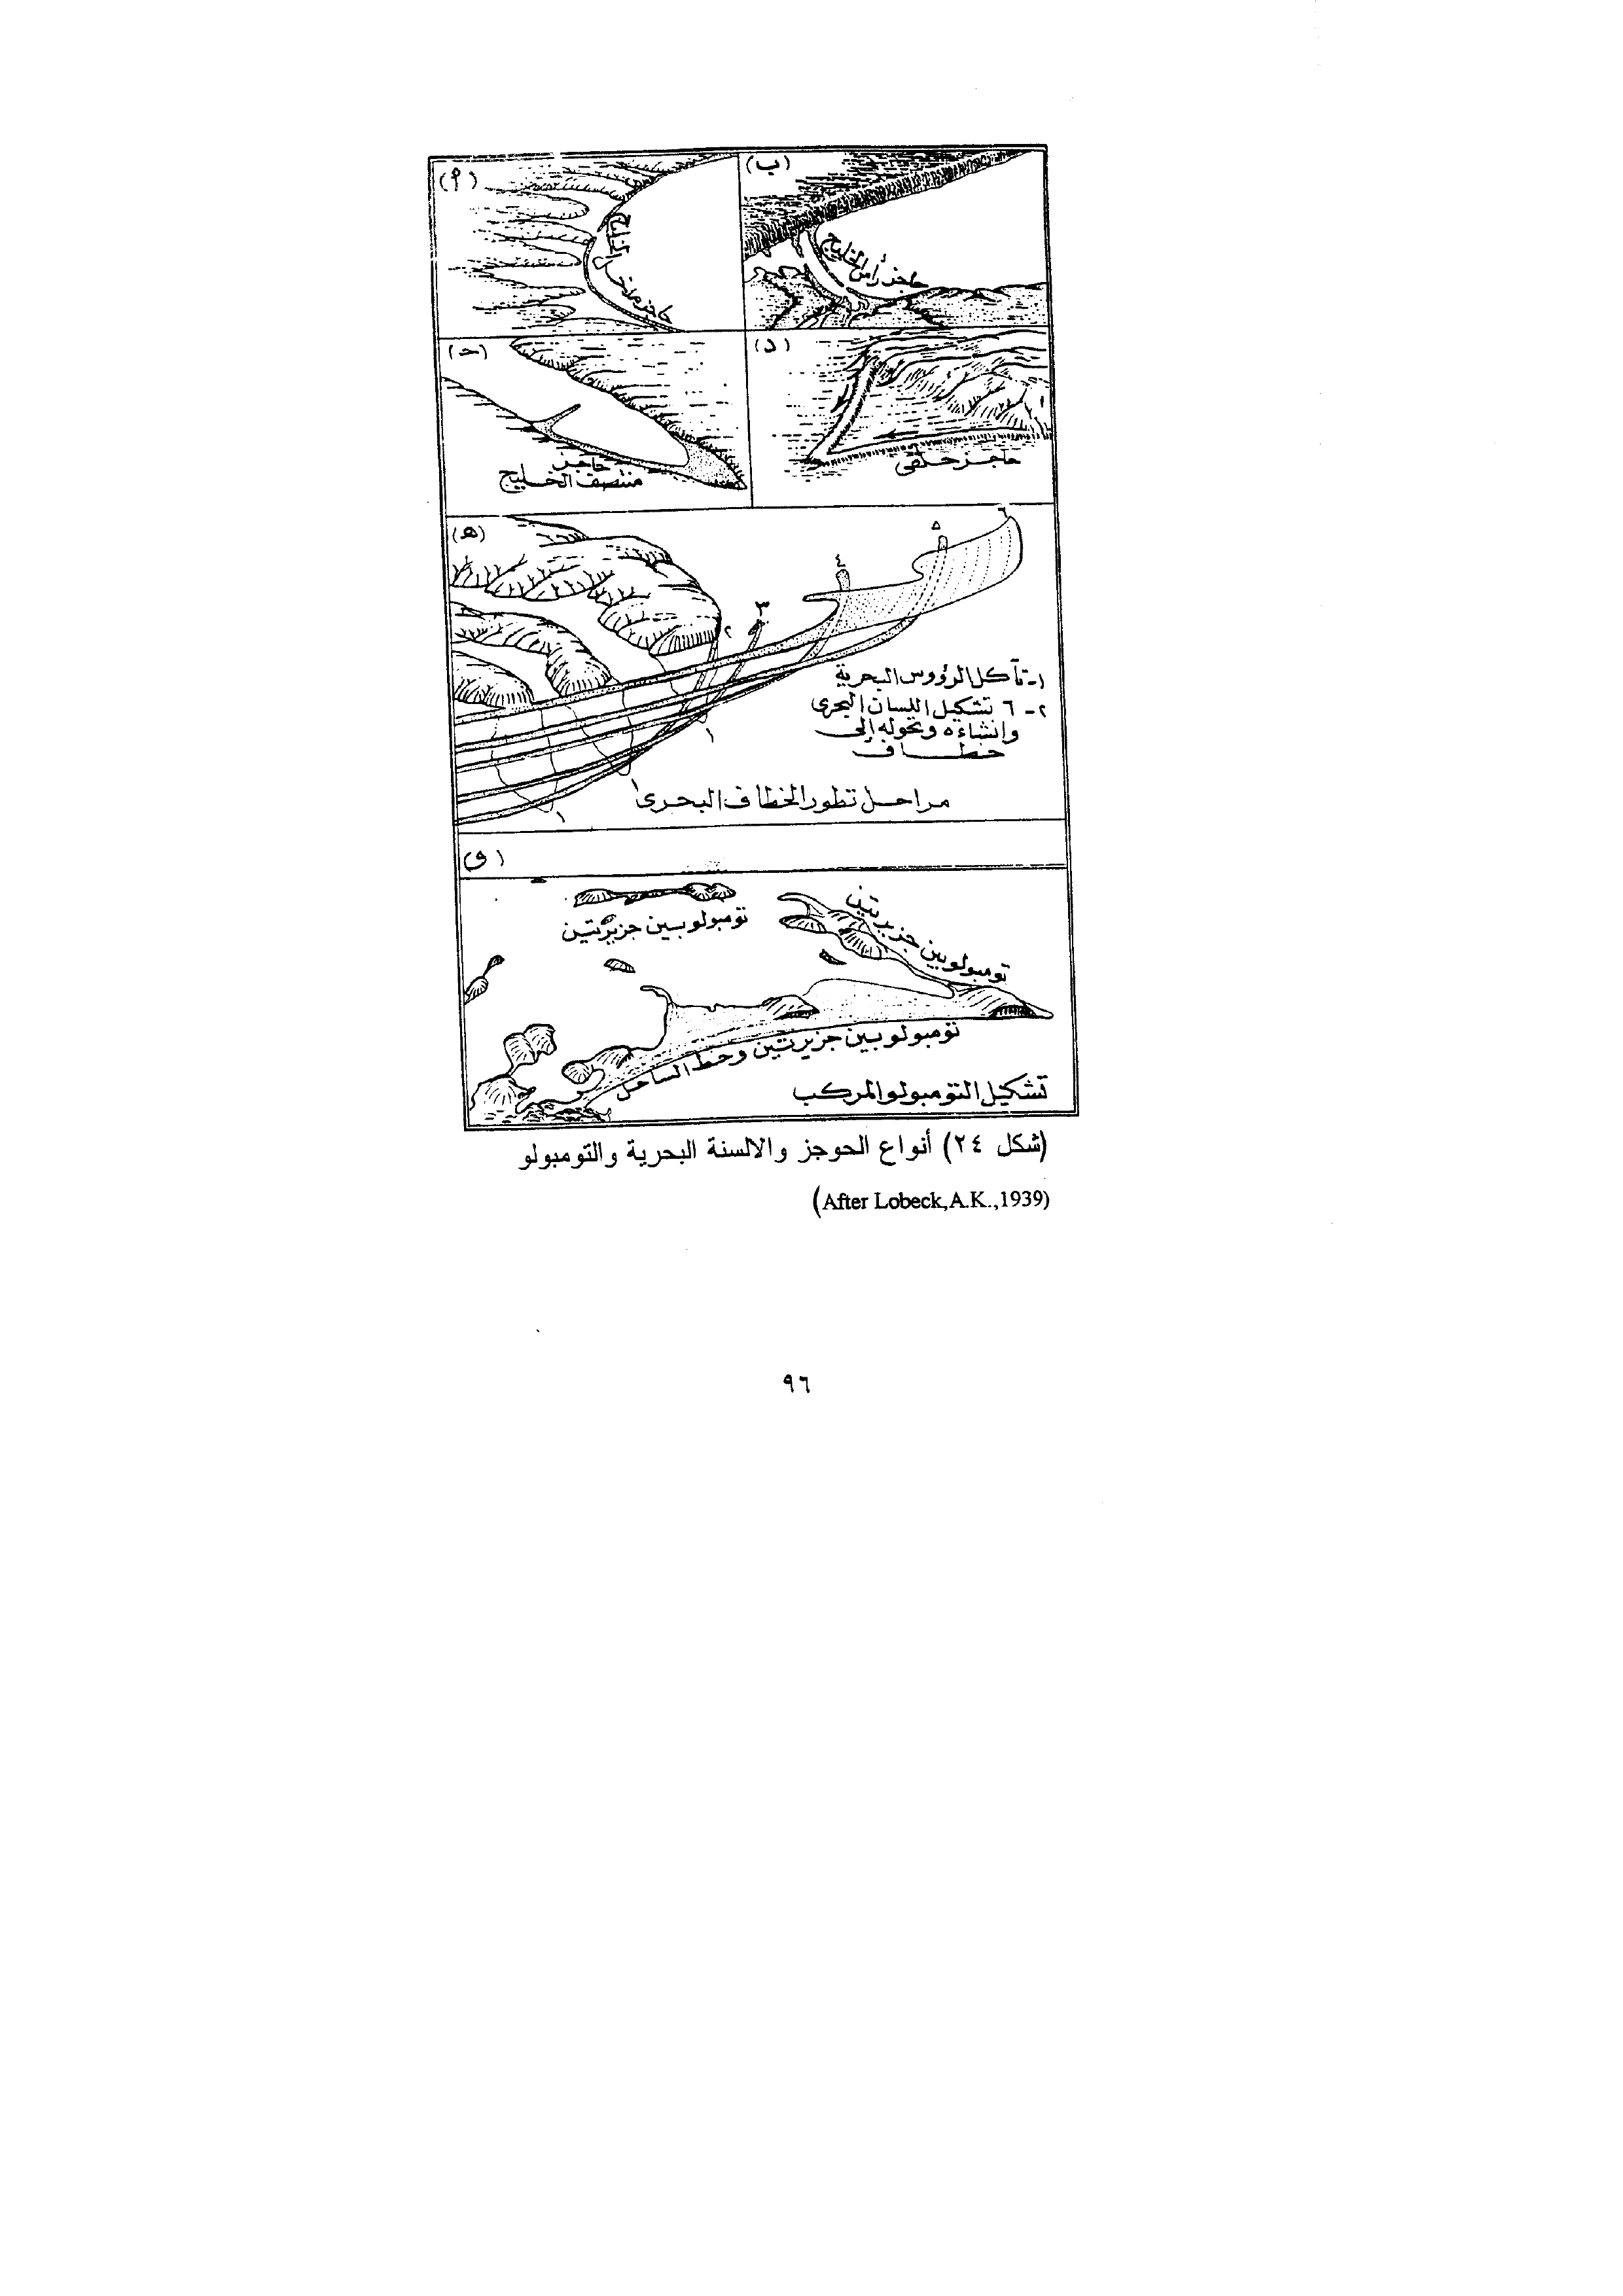 (أ)
حاجز مدخل الخليج
(ب)
حاجز رأس الخليج
(حـ)
حاجز
منتصف الخليج
(د)
حاجز حلقى
(هـ)
٦
٥
٤
٣
٢
١
١
١
١- تآكل الرؤوس البحرية
٢- ٦ تشكيل اللسان البحرى
وإنشاءه وتحوله إلى
خطاف
مراحل تطور الخطاف البحرى
(و)
تومبولو بين جزيرتين
تومبولو بين جزيرتين
تومبولو بين جزيرتين وخط الساحل
تشكيل التومبولو المركب
(شكل ٢٤) أنواع الحوجز والالسنة البحرية والتومبولو
(After Lobeck,A.K.,1939)
٩٦